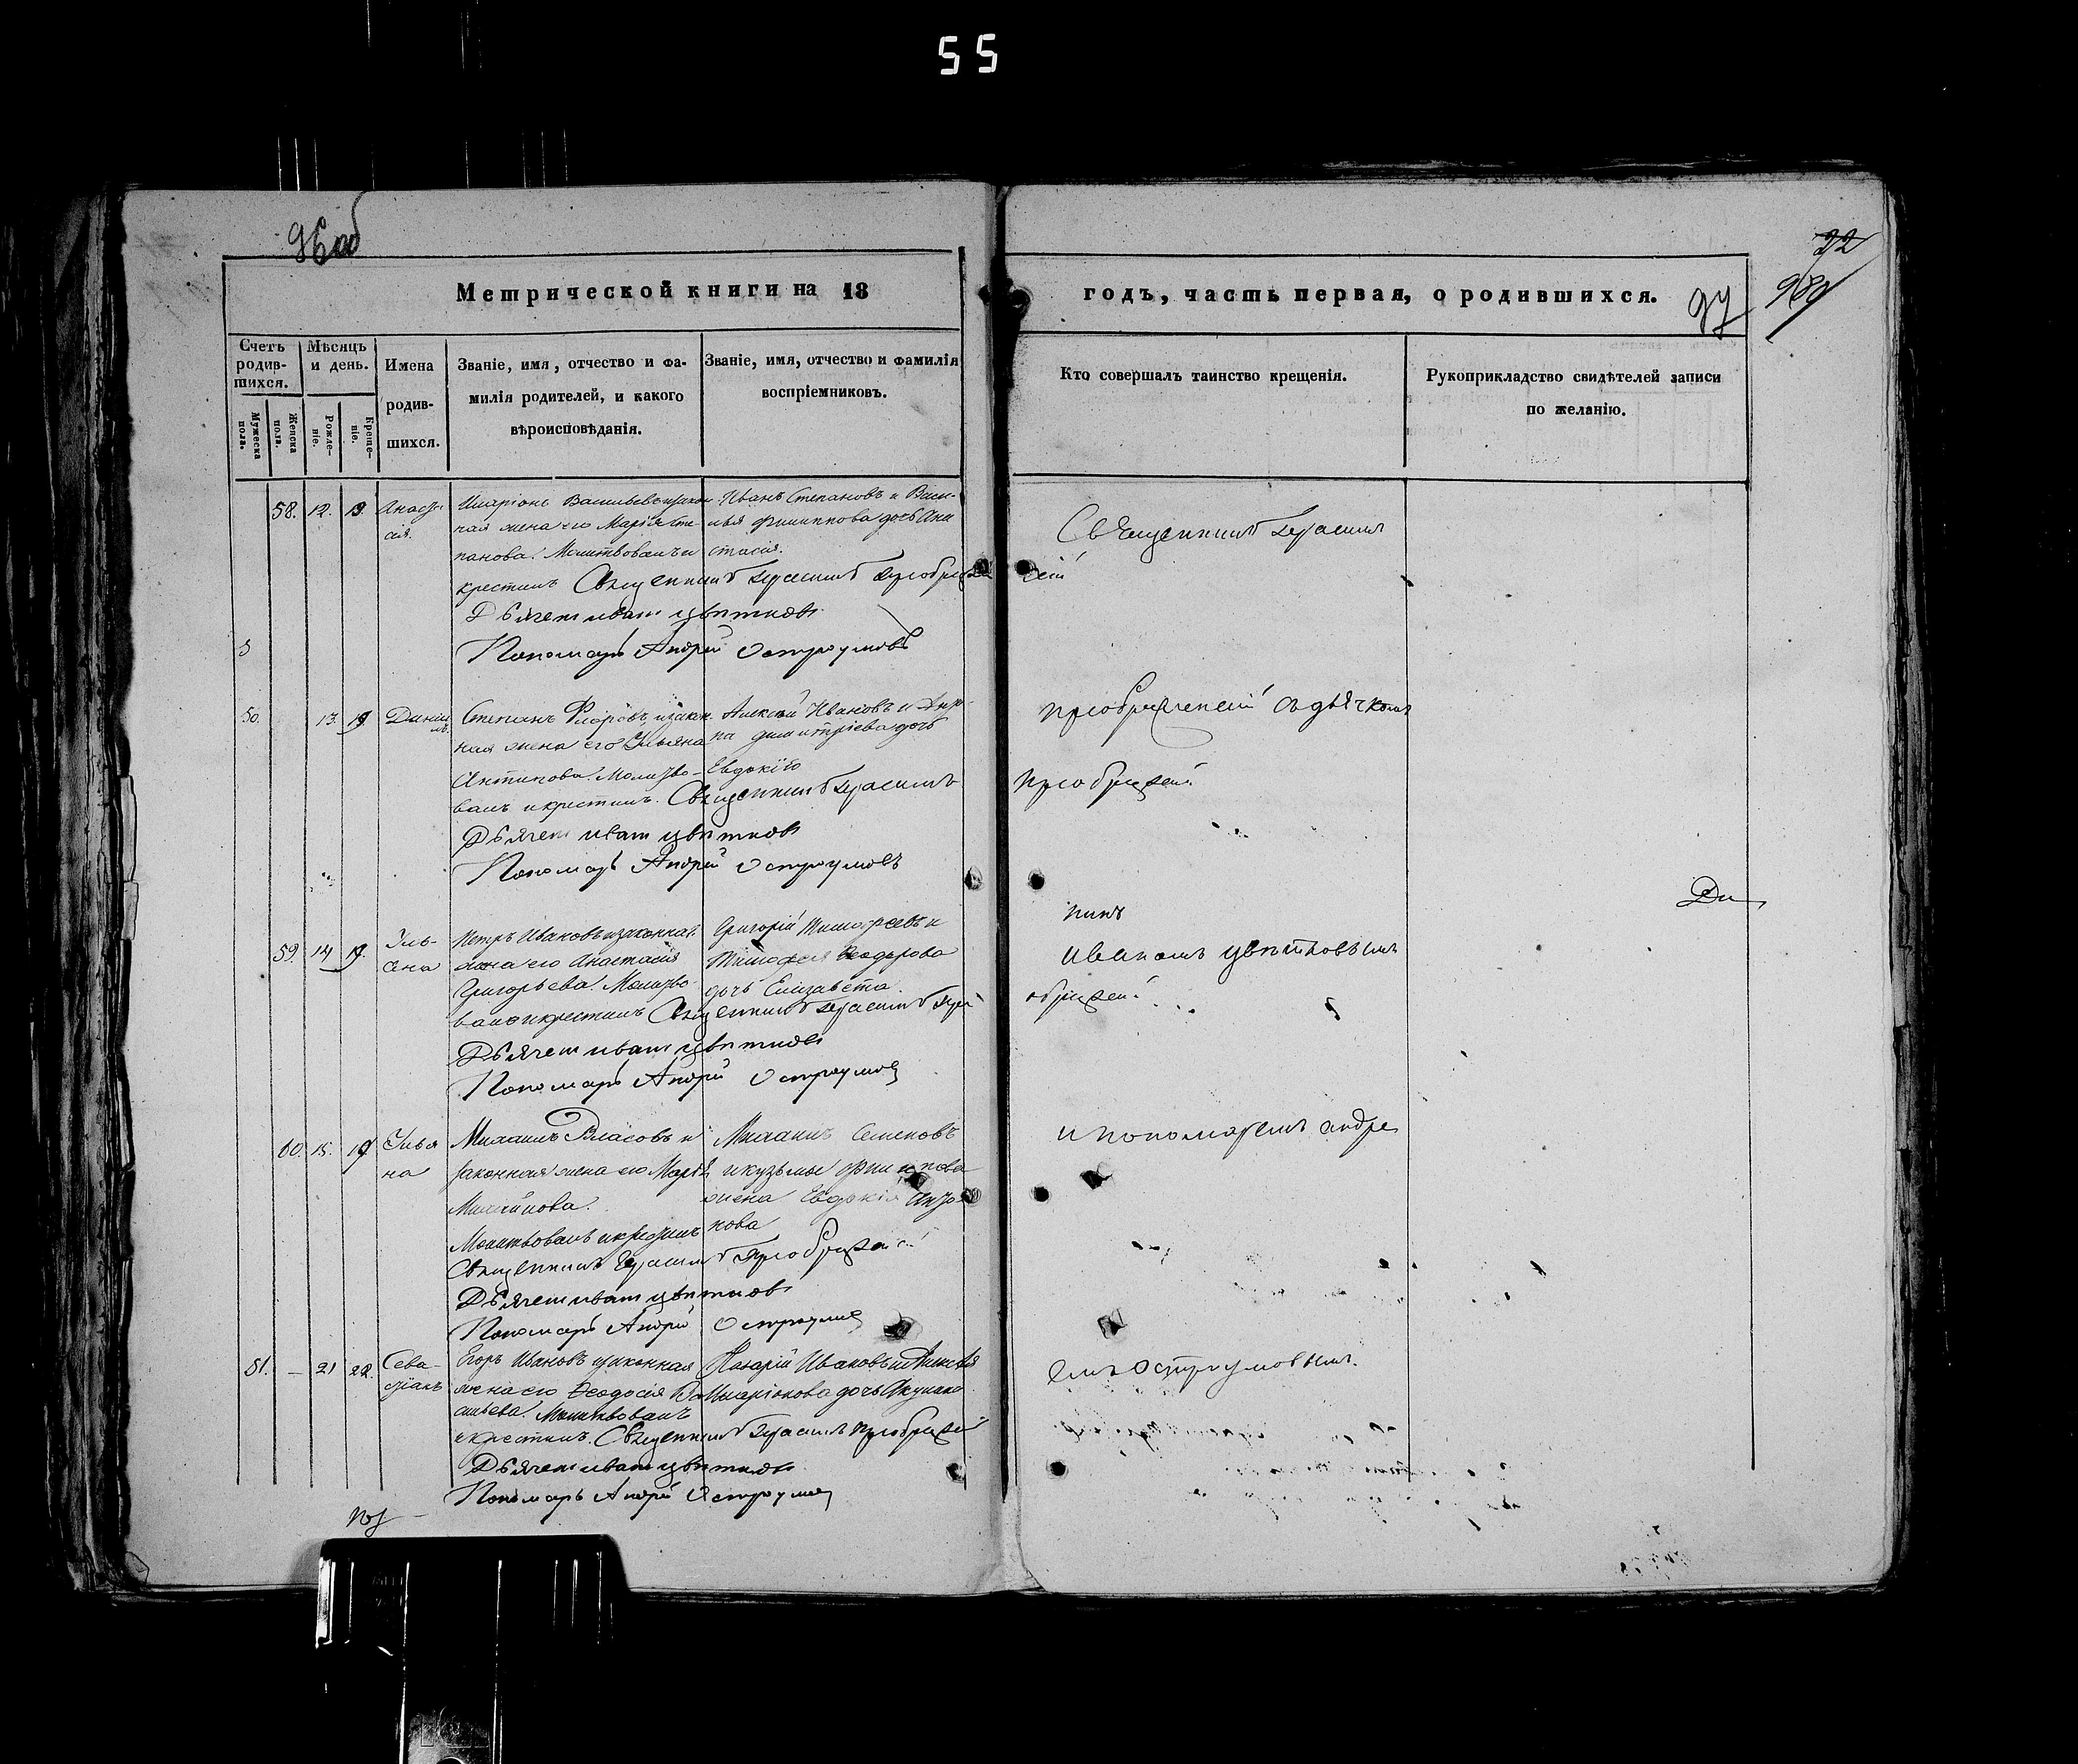 55
96об
22
97
Метрической книги на 18
годъ, часть первая, о родившихся.
Счетъ родившихся.
Мужеска пола.
Женска пола.
Мѣсяцъ и день.
Рожденіе.
Крещеніе.
Имена
родив-
шихся.
Званіе, имя, отчество и фа-
милія родителей, и какого
вѣроисповѣданія.
Званіе, имя, отчество и фамилія
воспріемниковъ.
Кто совершалъ таинство крещенія.
Рукоприкладство свидѣтелей записи
по желанію.
58. 12. 13. Анаста
сія.
Иларіонъ Васильевъ и закон
ная жена его Марія Сте
панова. Молитвовалъ и
крестилъ Священникъ Герасимъ Преображен
скій
Дьячекъ Иванъ Цвѣтковъ
Пономарь Андрей Остроумовъ
Иванъ Степановъ и Васи-
лья Филиппова дочь Ана
стасія.
Священникъ Герасимъ
50. 13. 19 Даніи
лъ.
Степанъ Флоровъ и закон.
ная жена его Ульяна
Антипова. Молитво-
валъ и крестилъ. Священникъ Герасимъ
Преображенскій
Дьячекъ Иванъ Цвѣтковъ
Пономарь Андрей Остроумовъ
Алексѣй Ивановъ и
на Димитріева дочь
Евдокія
Преображенскій съ дьячкомъ
59. 14 19. Уль-
яна
Петръ Ивановъ и законная
жена его Анастасія
Григорьева. Молитво-
валъ и крестилъ Священникъ Герасимъ Пре
ображенскій
Дьячекъ Иванъ Цвѣтковъ
Пономарь Андрей Остроумовъ
Григорій Тимофеевъ и
Тимофея Ѳеодорова
дочь Елизавета.
Иваномъ Цвѣтковымъ
60. 15. 19 Улья
на
Михаилъ Власовъ и
законная жена его Марія
Молитвовалъ и крестилъ
Священникъ Герасимъ Преображенскій
Дьячекъ Иванъ Цвѣтковъ
Пономарь Андрей Остроумовъ
Михаилъ Семеновъ
и кузьмы Филиппова
жена Евдокія Анто
нова
и пономаремъ Андре
51. - 21 22. Сева-
стіанъ
Егоръ Ивановъ и законная
жена его Ѳеодосія Ва
сильева. Молитвовалъ
и крестилъ. Священникъ Герасимъ Преображенскій
Дьячекъ Иванъ Цвѣтковъ
Пономарь Андрей Остроумовъ
Назарій Ивановъ и
Иларіонова дочь Акулина
емъ Остроумовымъ.